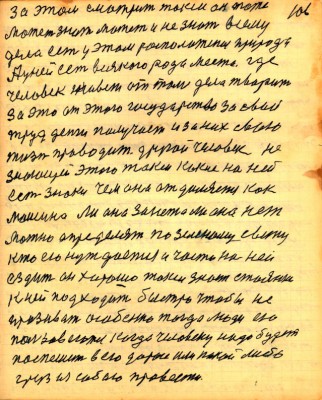 106
за этом смотрит такси он тоже
может знат может и не знат всему
дела ест у этом расположени природа
А у ней ест всякого рода места где
человек живет от там дела творит
за это от этого государство за свой
труд денги получает и за них свою
проводит другой человек не
знающей этого такси какие на ней
ест знаки чем она отдоляется как
машина ли она занета ли она нет
можно определят по зеленому свету
кто его нуждается и часто на ней
ездит он хорошо такси знает стоянки
к ней подходит быстро чтобы не
особенно тогда люди его
когда человеку надо будет
поспешит в его дороге или какой либо
груз из собою провести.